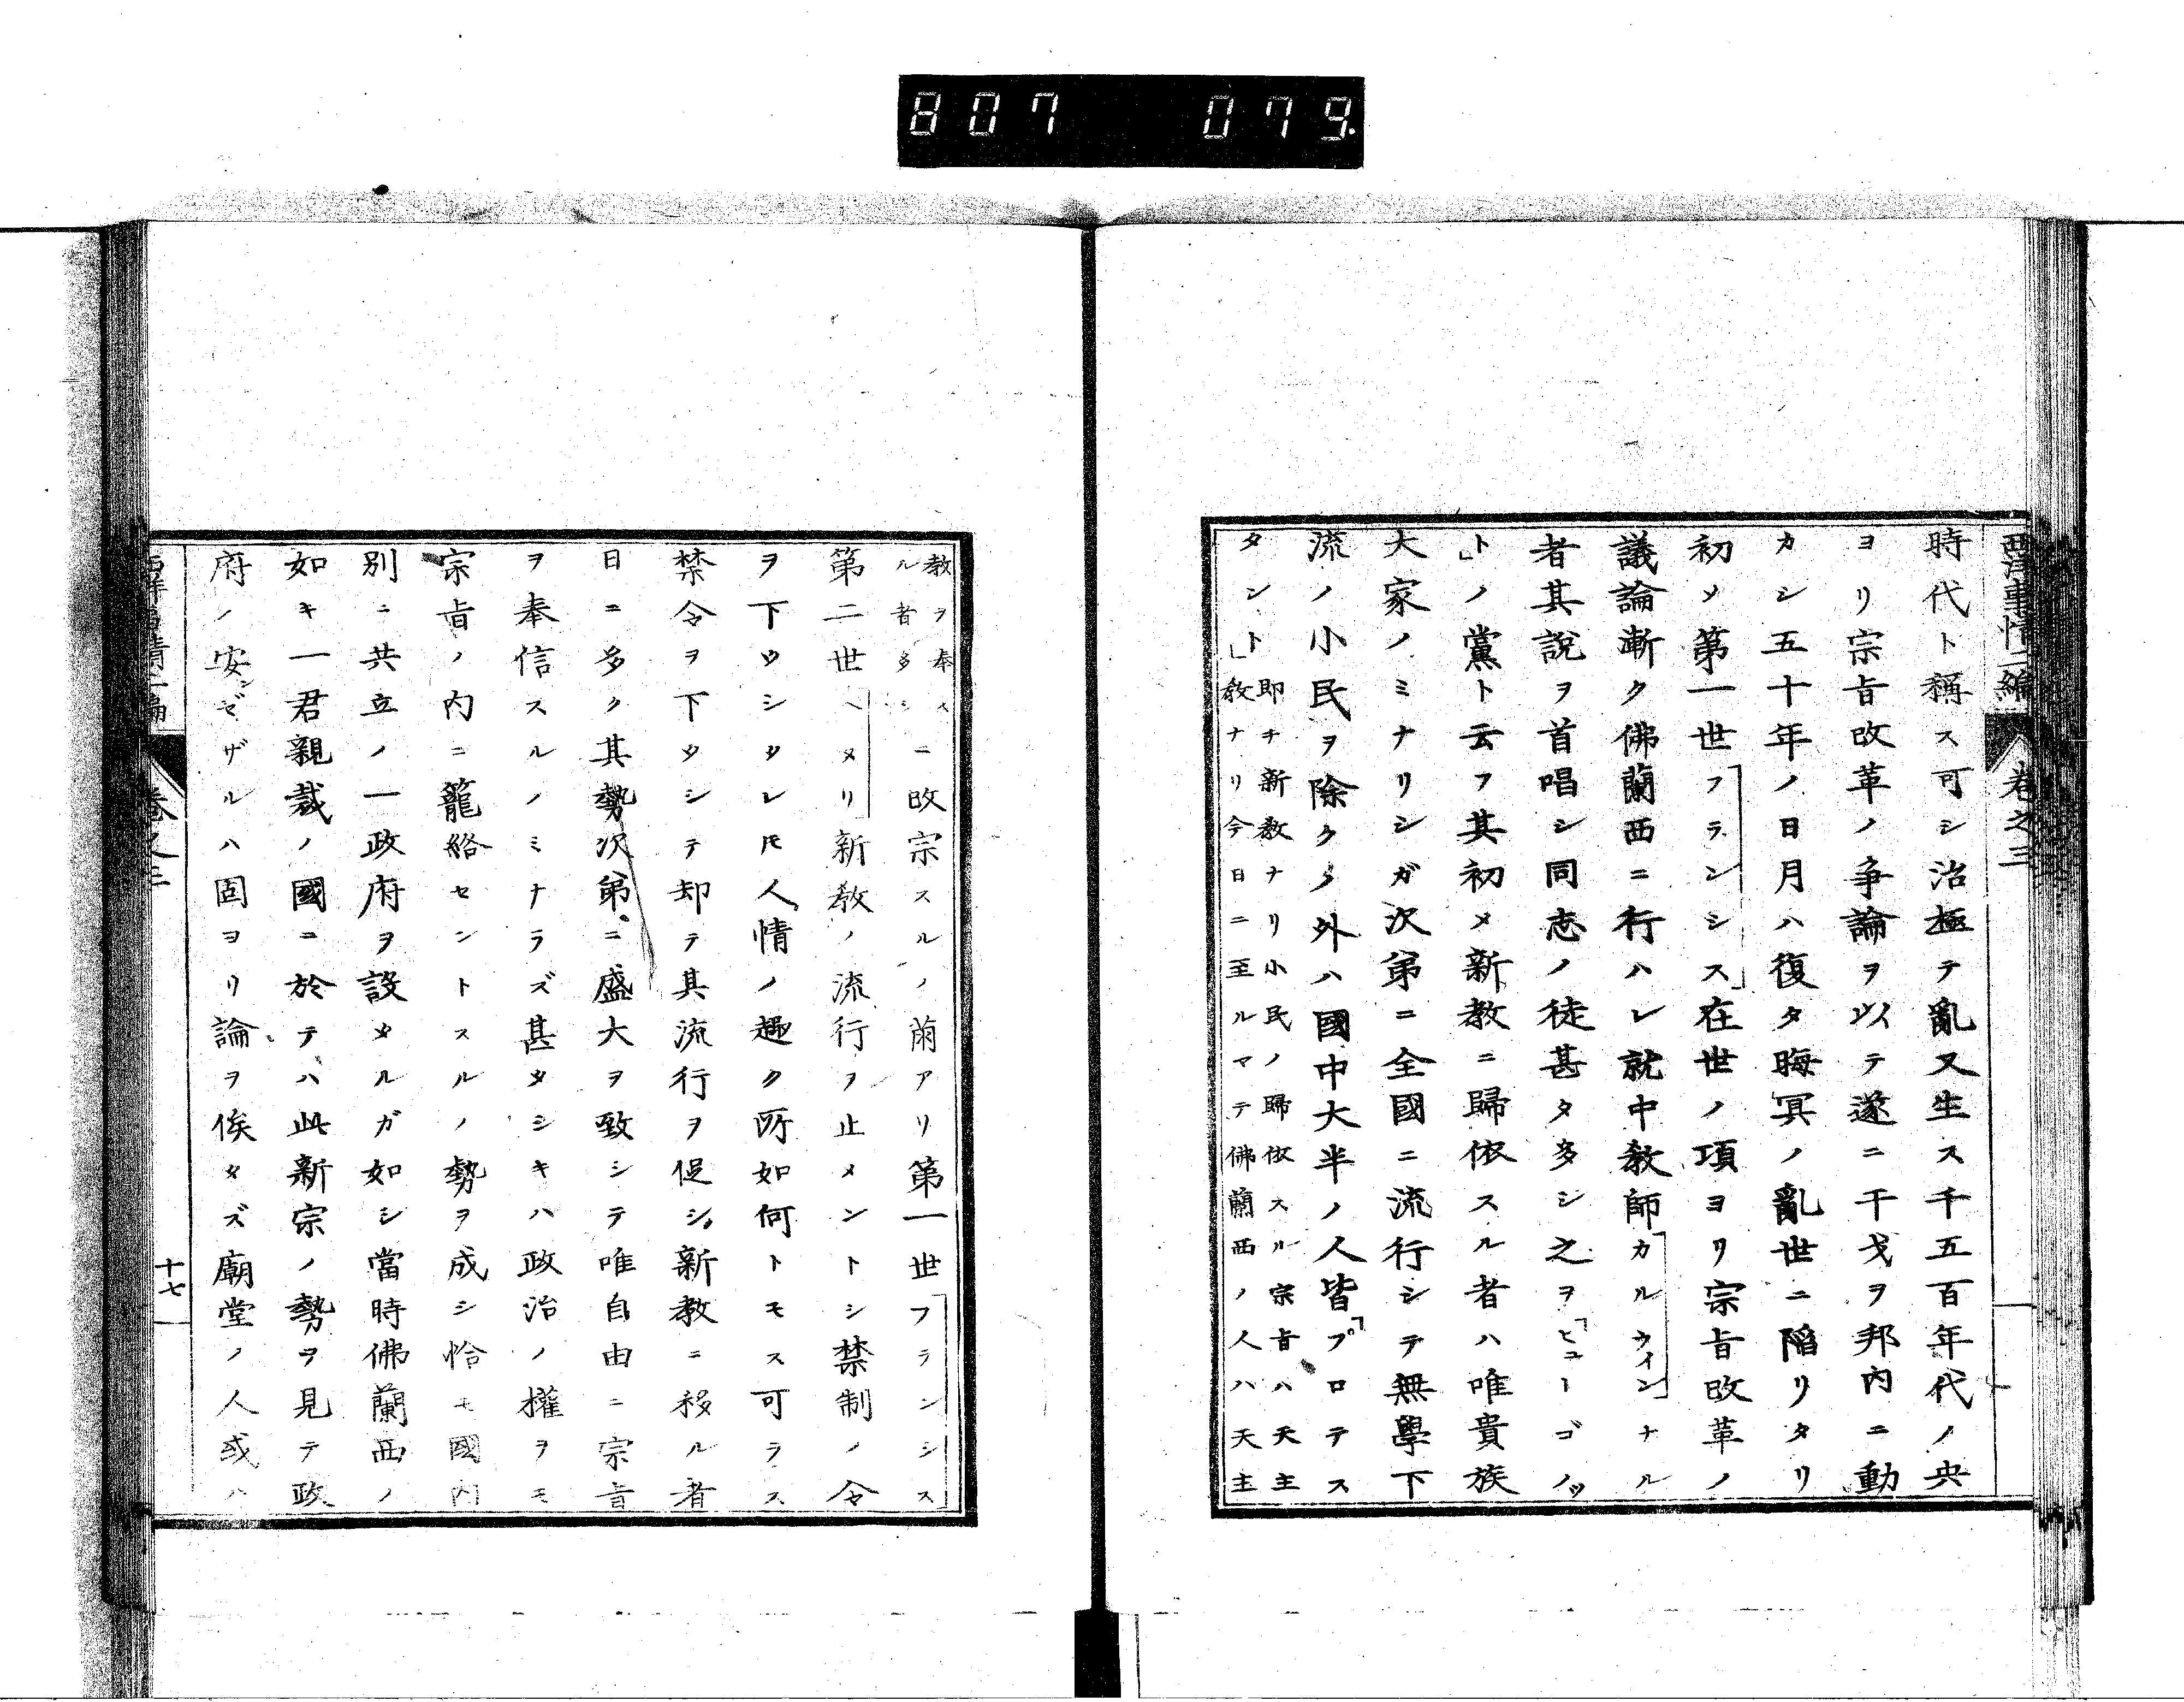 807 079
西洋事情二編 卷之三
時代ト稱ス可シ治極テ亂又生ス千五百年代ノ央
ヨリ宗旨改革ノ爭論ヲ以テ遂ニ干戈ヲ邦内ニ動
カシ五十年ノ日月ハ復タ晦冥ノ亂世ニ陷リタリ
初メ第一世「フランシス」在世ノ項ヨリ宗旨改革ノ
議論漸ク佛蘭西ニ行ハレ就中教師「カルウイン」ナル
者其說ヲ首唱シ同志ノ徒甚タ多シ之ヲ「ヒューゴノッ
ト」ノ黨ト云フ其初メ新教ニ歸依スル者ハ唯貴族
大家ノミナリシガ次第ニ全國ニ流行シテ無學下
流ノ小民ヲ除クノ外ハ國中大半ノ人皆「プロテス
タント」
即チ新教ナリ小民ノ歸依スル宗旨ハ天主
教ナリ今日ニ至ルマテ佛蘭西ノ人ハ天主
教ヲ奉ス
ル者多シ
ニ改宗スルノ萠アリ第一世「フランシス」
第二世「ヘヌリ」新教ノ流行ヲ止メントシ禁制ノ令
ヲ下タシタレ𪜈人情ノ趣ク所如何トモス可ラス
禁令ヲ下タシテ却テ其流行ヲ促シ新教ニ移ル者
日ニ多ク其勢次第ニ盛大ヲ致シテ唯自由ニ宗旨
ヲ奉信スルノミナラズ甚タシキハ政治ノ權ヲモ
宗旨ノ内ニ籠絡セントスルノ勢ヲ成シ恰モ國内
別ニ共立ノ一政府ヲ設タルガ如シ當時佛蘭西ノ
如キ一君親裁ノ國ニ於テハ此新宗ノ勢ヲ見テ政
府ノ安ンゼザルハ固ヨリ論ヲ俟タズ廟堂ノ人或ハ
西洋事情二編 卷之三 十七